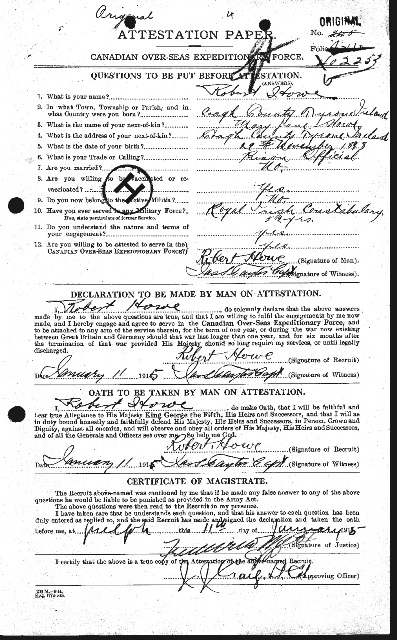 Original
ORIGINAL
ATTESTATION PAPER.
No.
Folio.
CANADIAN OVER-SEAS EXPEDITIONARY FORCE.
QUESTIONS TO BE PUT BEFORE ATTESTATION.
(ANSWERS)
1. What is your name? Robert Howe
2. In what Town, Township or Parish, and in what Country were you born? Coagh County Tyrone Ireland
3. What is the name of your next-of-kin? Mary Jane Howe
4. What is the address of your next-of-kin? Coagh County Tyrone Ireland
5. What is the date of your birth? November
6. What is your Trade or Calling? Prison Official
7. Are you married? No.
8. Are you willing to be vaccinated or re-vaccinated? Yes.
H
9. Do you now belong to the Active Militia? No.
10. Have you ever served in any Military Force? Royal Irish Constabulary
If so, state particulars of former Service. yrs.
11. Do you understand the nature and terms of your engagement? yes.
12. Are you willing to be attested to serve in the CANADIAN OVER-SEAS EXPEDITIONARY FORCE? yes
Robert Howe (Signature of Man).
(Signature of Witness).
DECLARATION TO BE MADE BY MAN ON ATTESTATION.
I, Robert Howe, do solemnly declare that the above answers
made by me to the above questions are true, and that I am willing to fulfil the engagements by me now
made, and I hereby engage and agree to serve in the Canadian Over-Seas Expeditionary Force, and
to be attached to any arm of the service therein, for the term of one year, or during the war now existing
between Great Britain and Germany should that war last longer than one year, and for six months after
the termination of that war provided His Majesty should so long require my services, or until legally
discharged.
Robert Howe (Signature of Recruit)
Date January 11 1915 (Signature of Witness)
OATH TO BE TAKEN BY MAN ON ATTESTATION.
I, Robert Howe, do make Oath, that I will be faithful and
bear true Allegiance to His Majesty King George the Fifth, His Heirs and Successors, and that I will as
in duty bound honestly and faithfully defend His Majesty, His Heirs and Successors, in Person, Crown and
Dignity, against all enemies, and will observe and obey all orders of His Majesty, His Heirs and Successors,
and of all the Generals and Officers set over me. So help me God.
Robert Howe (Signature of Recruit)
Date January 11 1915 (Signature of Witness)
CERTIFICATE OF MAGISTRATE.
The Recruit above-named was cautioned by me that if he made any false answer to any of the above
questions he would be liable to be punished as provided in the Army Act.
The above questions were then read to the Recruit in my presence.
I have taken care that he understands each question, and that his answer to each question has been
duly entered as replied to, and the said Recruit has made and signed the declaration and taken the oath
before me, at Guelph this 11th day of January 1915
(Signature of Justice)
I certify that the above is a true copy of the Attestation of the above-named Recruit.
(Approving Officer)